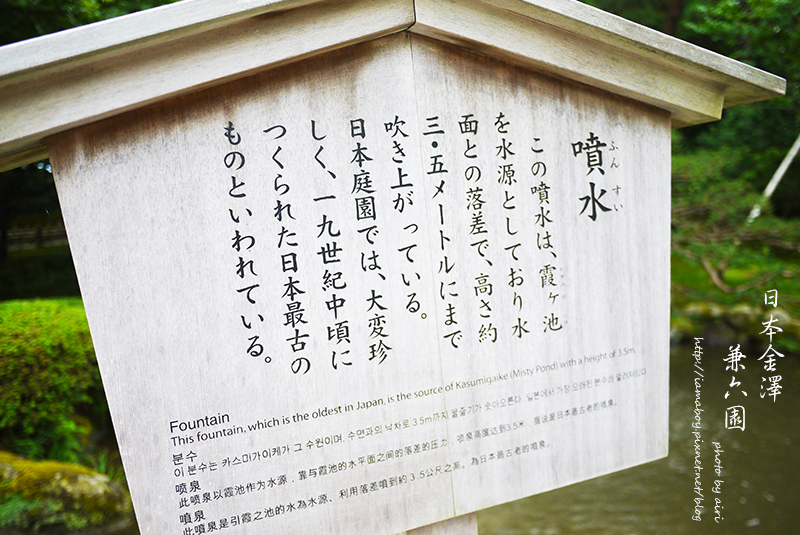 噴水
ふんすい
この噴水は、霞ヶ池
を水源としており水
面との落差で、高さ約
三・五メートルにまで
吹き上がっている。
日本庭園では、大変珍
しく、一九世紀中頃に
つくられた日本最古の
ものといわれている。
Fountain
This fountain, which is the oldest in Japan, is the source of Kasumigaike (Misty Pond) with a height of 3.5m.
분수
이 분수는 카스미가이케가 그 수원이며, 수면과의 낙차로 3.5m까지 물줄기가 솟아오른다. 일본에서 가장 오래된 분수라 알려져있다.
喷泉
此喷泉以霞池作为水源，靠与霞池的水平面之间的落差的压力，喷泉高度达到3.5米。据说是日本最古老的喷泉。
噴泉
此噴泉是引霞之池的水為水源、利用落差噴到約3.5公尺之高。為日本最古老的噴泉。
日本金澤
兼六園
http://iamaboy.pixnet.net/blog
photo by airi